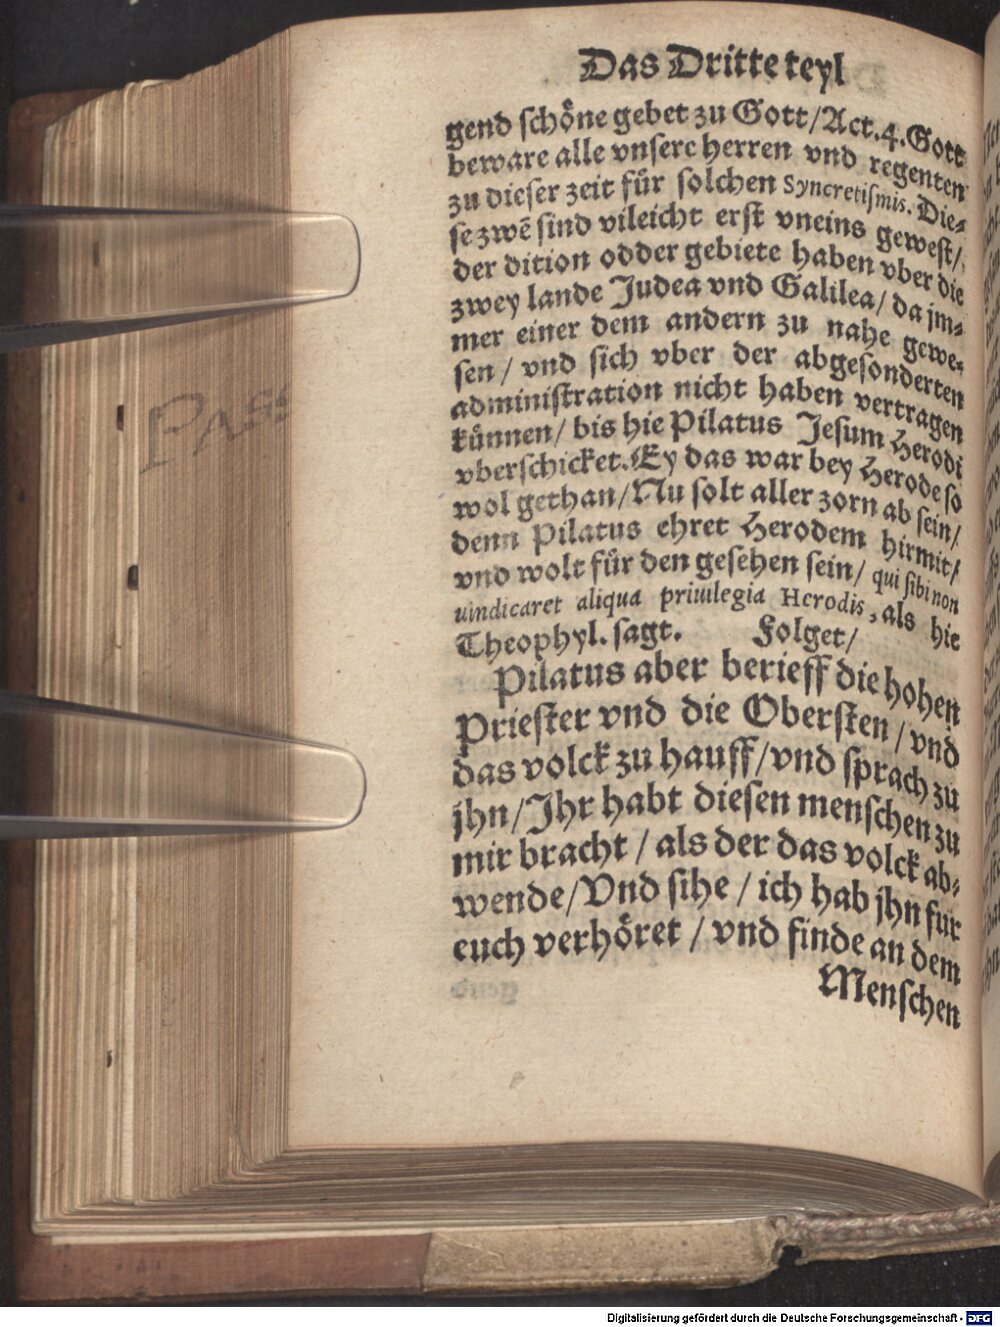 Das Dritte teyl
gend schöne gebet zu Gott/Act.4.Gott
beware alle vnsere herren vnd regenten
zu dieser zeit für solchen Syncretismis. Die⸗
se zwẽ sind vileicht erst vneins gewest/
der dition odder gebiete haben vber die
zwey lande Judea vnd Galilea/ da jm⸗
mer einer dem andern zu nahe gewe⸗
sen/ vnd sich vber der abgesonderten
administration nicht haben vertragen
künnen/ bis hie Pilatus Jesum Herodi
vberschicket. Ey das war bey Herode so
wol gethan/Nu solt aller zorn ab sein/
denn Pilatus ehret Herodem hirmit/
vnd wolt für den gesehen sein/ qui sibi non
uindicaret aliqua priuilegia Herodis, als hie
Theophyl. sagt. Folget/
Pilatus aber berieff die hohen
Priester vnd die Obersten/ vnd
das volck zu hauff/vnd sprach zu
jhn/Jhr habt diesen menschen zu
mir bracht/ als der das volck ab⸗
wende/Vnd sihe/ ich hab jhn fur
euch verhöret/ vnd finde an dem
Menschen
PASS
Digitalisierung gefördert durch die Deutsche Forschungsgemeinschaft - DFG